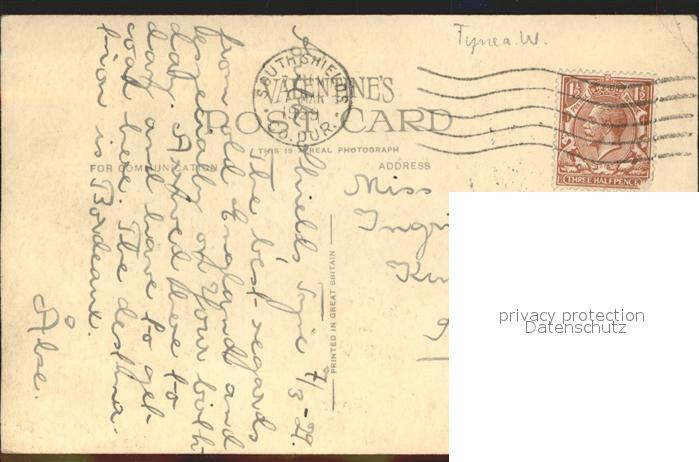 Tyne a. W.
SOUTH SHIELDS
MAR
1929
CO. DUR.
VALENTINE'S
POST CARD
THIS IS A REAL PHOTOGRAPH
FOR COMMUNICATION
ADDRESS
PRINTED IN GREAT BRITAIN
1½ 1½
THREE HALFPENCE
S. Shields Tyne 7/3-29.
The best regards
from old England and
especially on Your birth-
day. Arrived here to
day and have to get
coal here. The destina-
tion is Bordeaux.
Åbse.
Miss
Ingri
privacy protection
Datenschutz